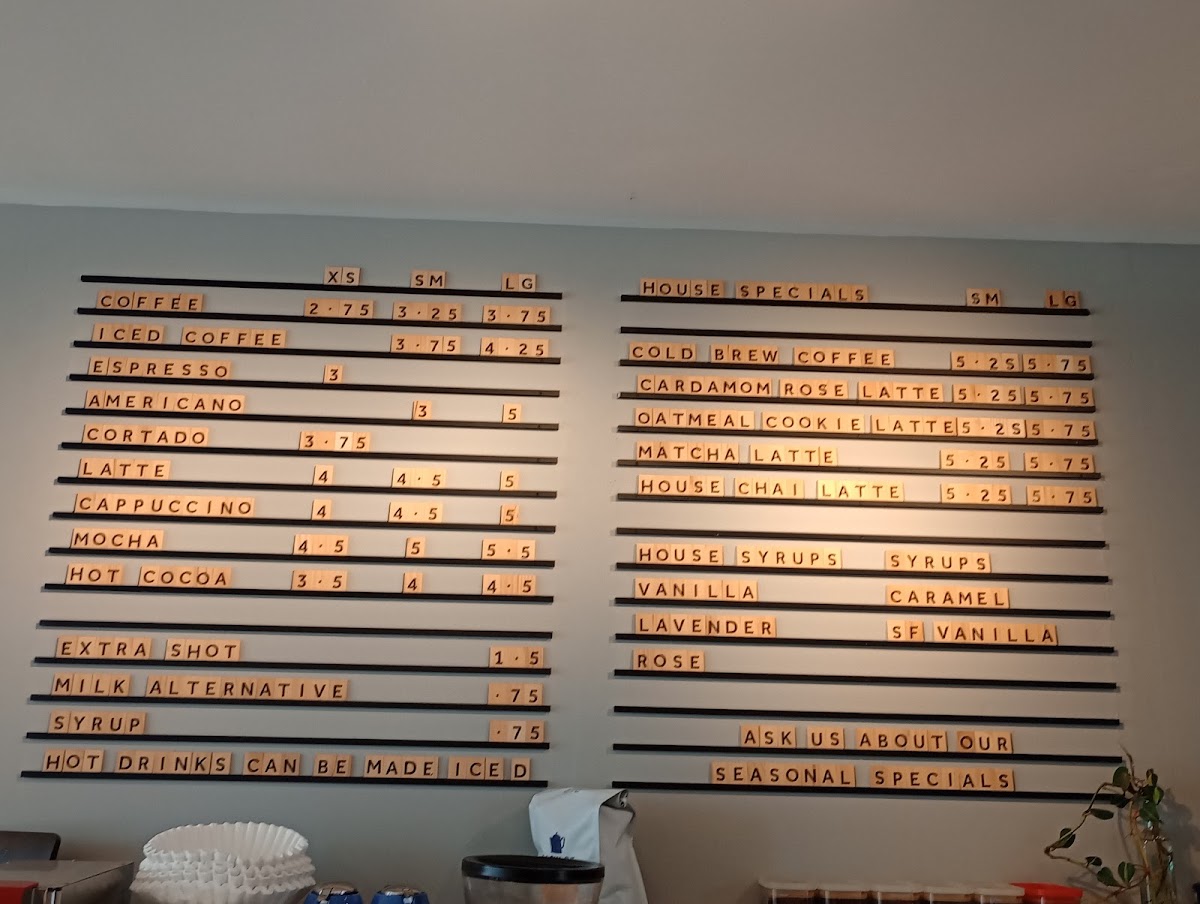 XS SM LG
COFFEE 2.75 3.25 3.75
ICED COFFEE 3.75 4.25
ESPRESSO 3
AMERICANO 3 5
CORTADO 3.75
LATTE 4 4.5 5
CAPPUCCINO 4 4.5 5
MOCHA 4.5 5 5.5
HOT COCOA 3.5 4 4.5
EXTRA SHOT 1.5
MILK ALTERNATIVE .75
SYRUP .75
HOT DRINKS CAN BE MADE ICED
HOUSE SPECIALS SM LG
COLD BREW COFFEE 5.25 5.75
CARDAMOM ROSE LATTE 5.25 5.75
OATMEAL COOKIE LATTE 5.25 5.75
MATCHA LATTE 5.25 5.75
HOUSE CHAI LATTE 5.25 5.75
HOUSE SYRUPS SYRUPS
VANILLA CARAMEL
LAVENDER SF VANILLA
ROSE
ASK US ABOUT OUR
SEASONAL SPECIALS